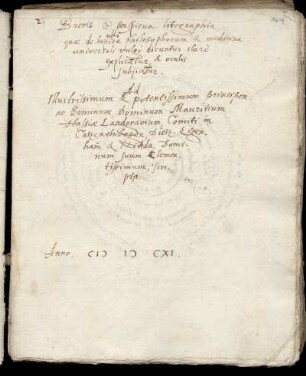 Brevis & perspicua
quæ de lapide philosophorum & medicina
universali vulgo dicuntur clare
explicantur, & oculis
subjiciuntur.
Ad
Illustrissimum & potentissimum Principem
ac Dominum Dominum Mauritium
Hassiæ Landgravium Comitem in
Catzenelnbogen Dietz, Zigen
hain & Nidda Domi-
num suum Clemen
tissimum, scri-
pta
Anno CIↃ IↃ CXI.